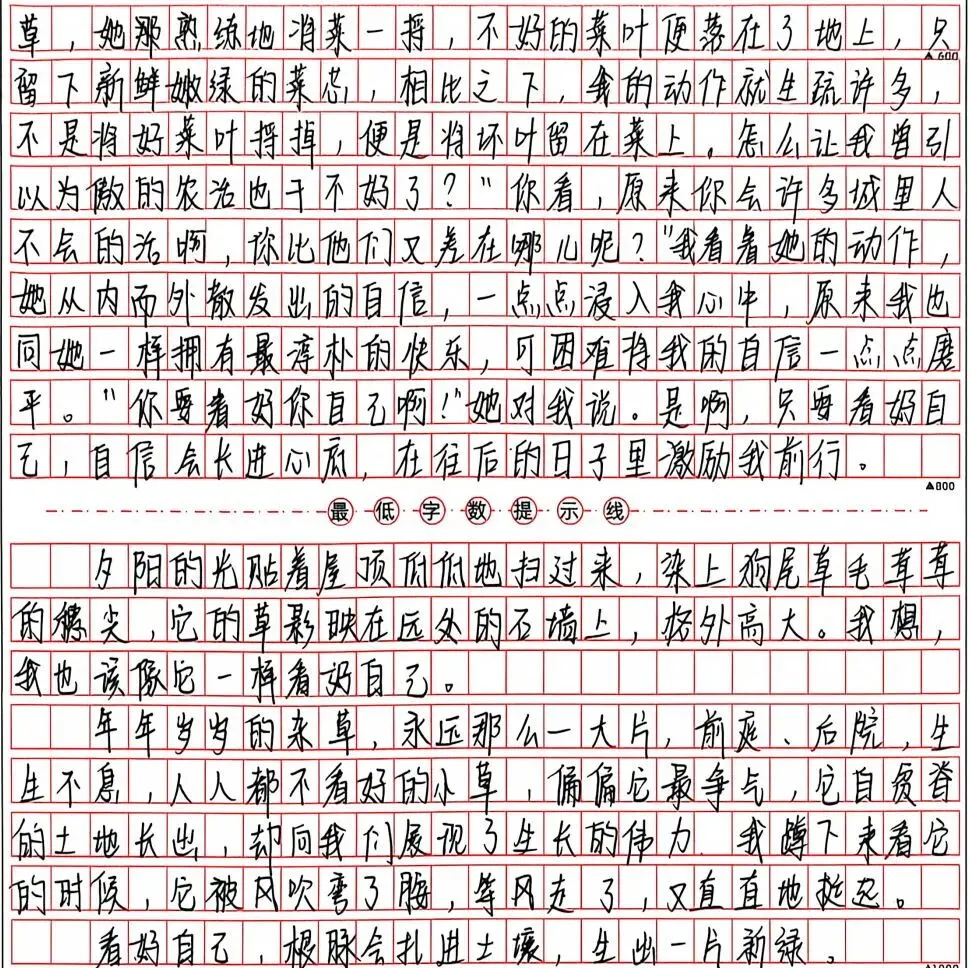 草，她那熟练地将菜一捋，不好的菜叶便落在了地上，只
▲600
留下新鲜嫩绿的菜芯，相比之下，我的动作就生疏许多，
不是将好菜叶捋掉，便是将坏叶留在菜上。怎么让我曾引
以为傲的农活也干不好了？"你看，原来你会许多城里人
不会的活啊，你比他们又差在哪儿呢？"我看着她的动作，
她从内而外散发出的自信，一点点浸入我心中，原来我也
同她一样拥有最淳朴的快乐，可困难将我的自信一点点磨
平。"你要看好你自己啊！"她对我说。是啊，只要看好自
己，自信会长进心底，在往后的日子里激励我前行。
▲800
最低字数提示线
夕阳的光贴着屋顶低低地扫过来，染上狗尾草毛茸茸
的穗尖，它的草影映在远处的石墙上，格外高大。我想，
我也该像它一样看好自己。
年年岁岁的杂草，永远那么一大片，前庭、后院，生
生不息，人人都不看好的小草，偏偏它最争气，它自贫脊
的土地长出，却向我们展现了生长的伟力．我蹲下来看它
的时候，它被风吹弯了腰，等风走了，又直直地挺起。
看好自己，根脉会扎进土壤，生出一片新绿。
▲1000